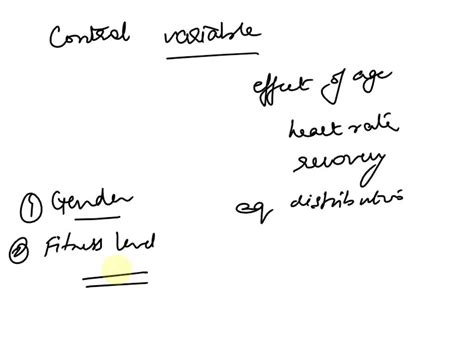 Control variable
effect of age
heart rate
recovery
① Gender
eq distributio
② Fitness level